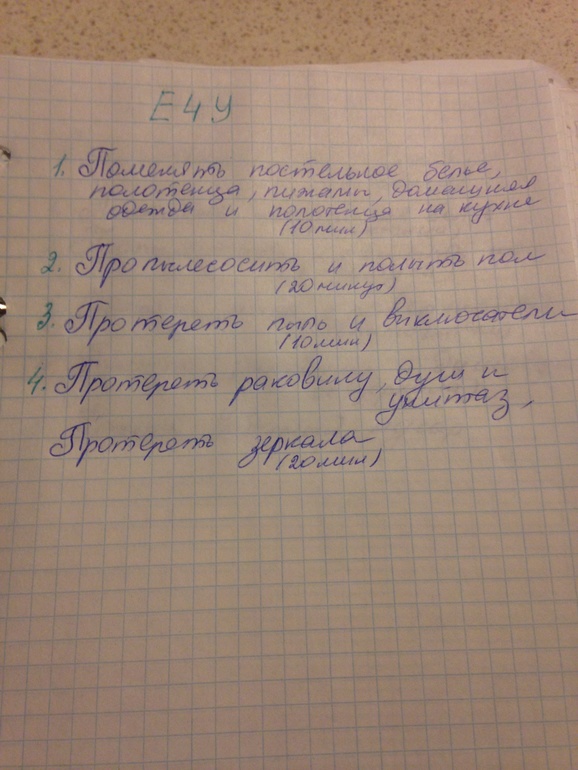 Е4У
1. Поменять постельное белье,
полотенца, пижамы, домашняя
одежда и полотенца на кухне
(10 мин)
2. Пропылесосить и помыть пол
(20 минут)
3. Протереть пыль и выключатели
(10 мин)
4. Протереть раковину, душ и
унитаз,
Протереть зеркала
(20 мин)